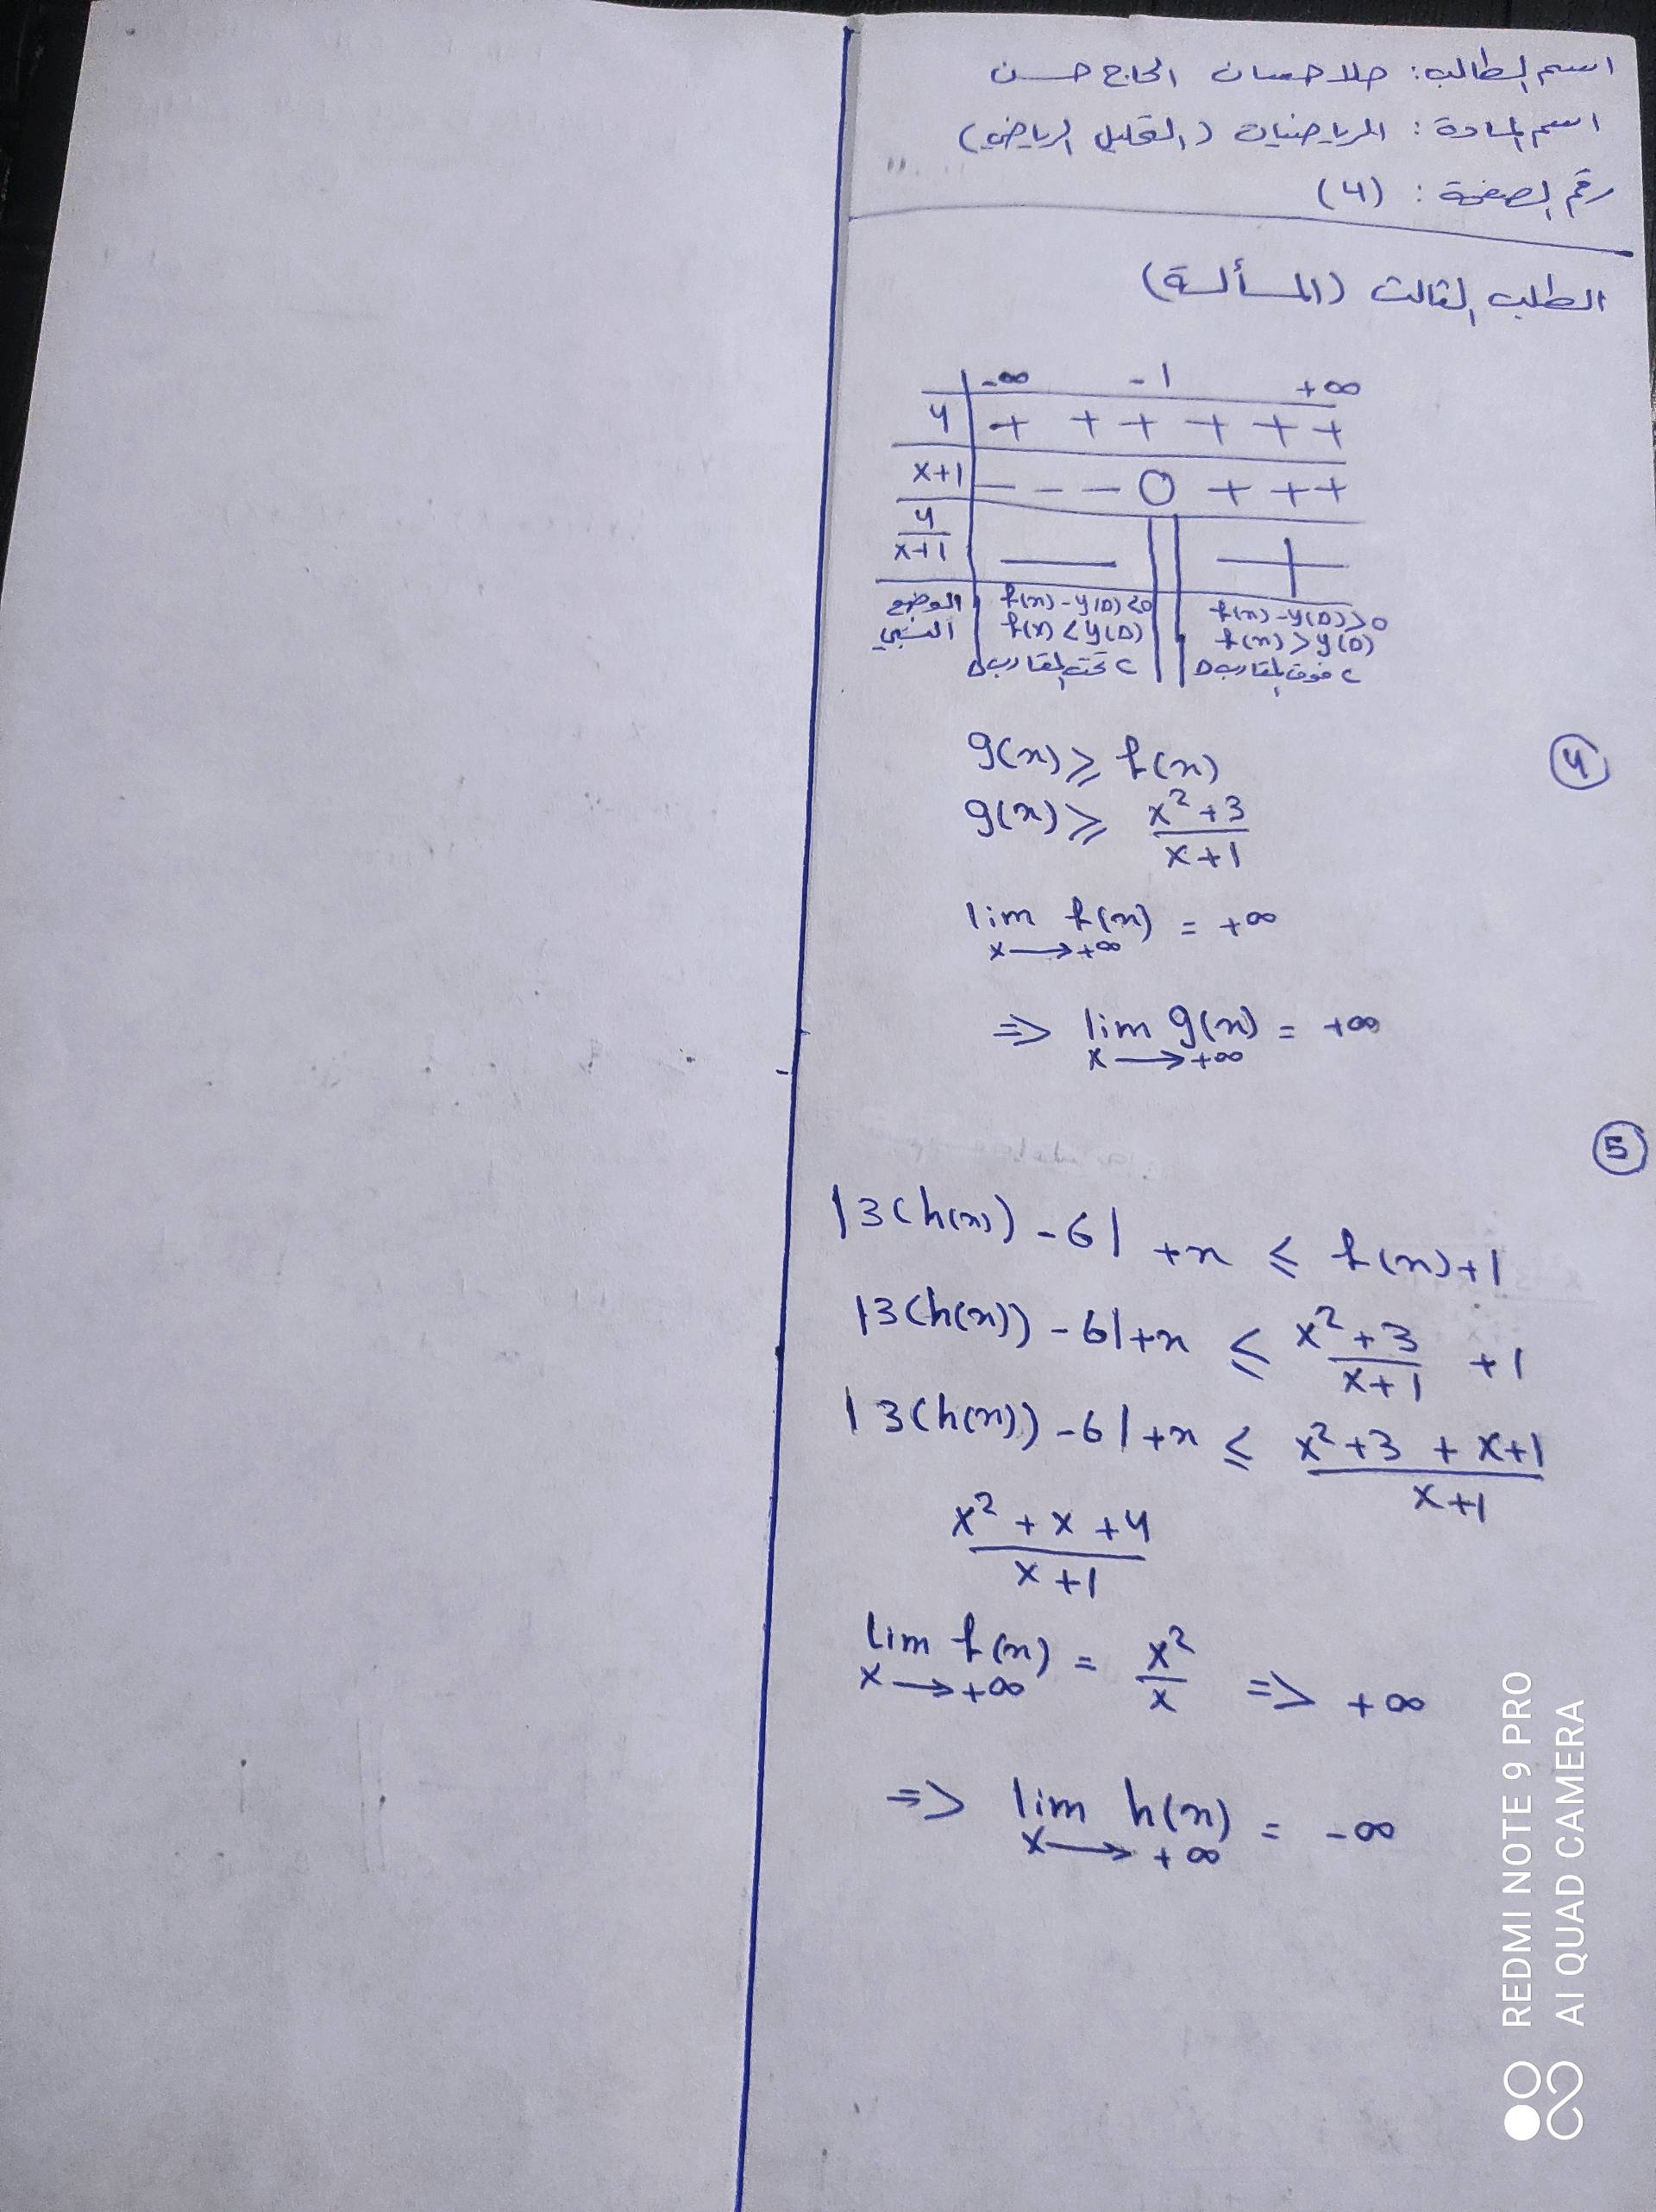 اسم الطالب: حلا حسان الحاج حسن
اسم المادة: الرياضيات (التحليل الرياضي)
رقم الصفحة: (4)
الطلب الثالث (المسألة)
-∞ -1 +∞
4 + + + + + +
x+1 - - - 0 + + +
4/(x+1) - || +
الوضع النسبي
f(x) - y(D) < 0
f(x) < y(D)
C تحت المقارب D
f(x) - y(D) > 0
f(x) > y(D)
C فوق المقارب D
④
g(x) ≥ f(x)
g(x) ≥ (x²+3)/(x+1)
lim f(x) = +∞
x→+∞
⇒ lim g(x) = +∞
x→+∞
⑤
|3(h(x)) - 6| + x ≤ f(x)+1
|3(h(x)) - 6| + x ≤ (x²+3)/(x+1) + 1
|3(h(x)) - 6| + x ≤ (x²+3 + x+1)/(x+1)
(x² + x + 4)/(x+1)
lim f(x) = x²/x ⇒ +∞
x→+∞
⇒ lim h(x) = -∞
x→+∞
REDMI NOTE 9 PRO
AI QUAD CAMERA